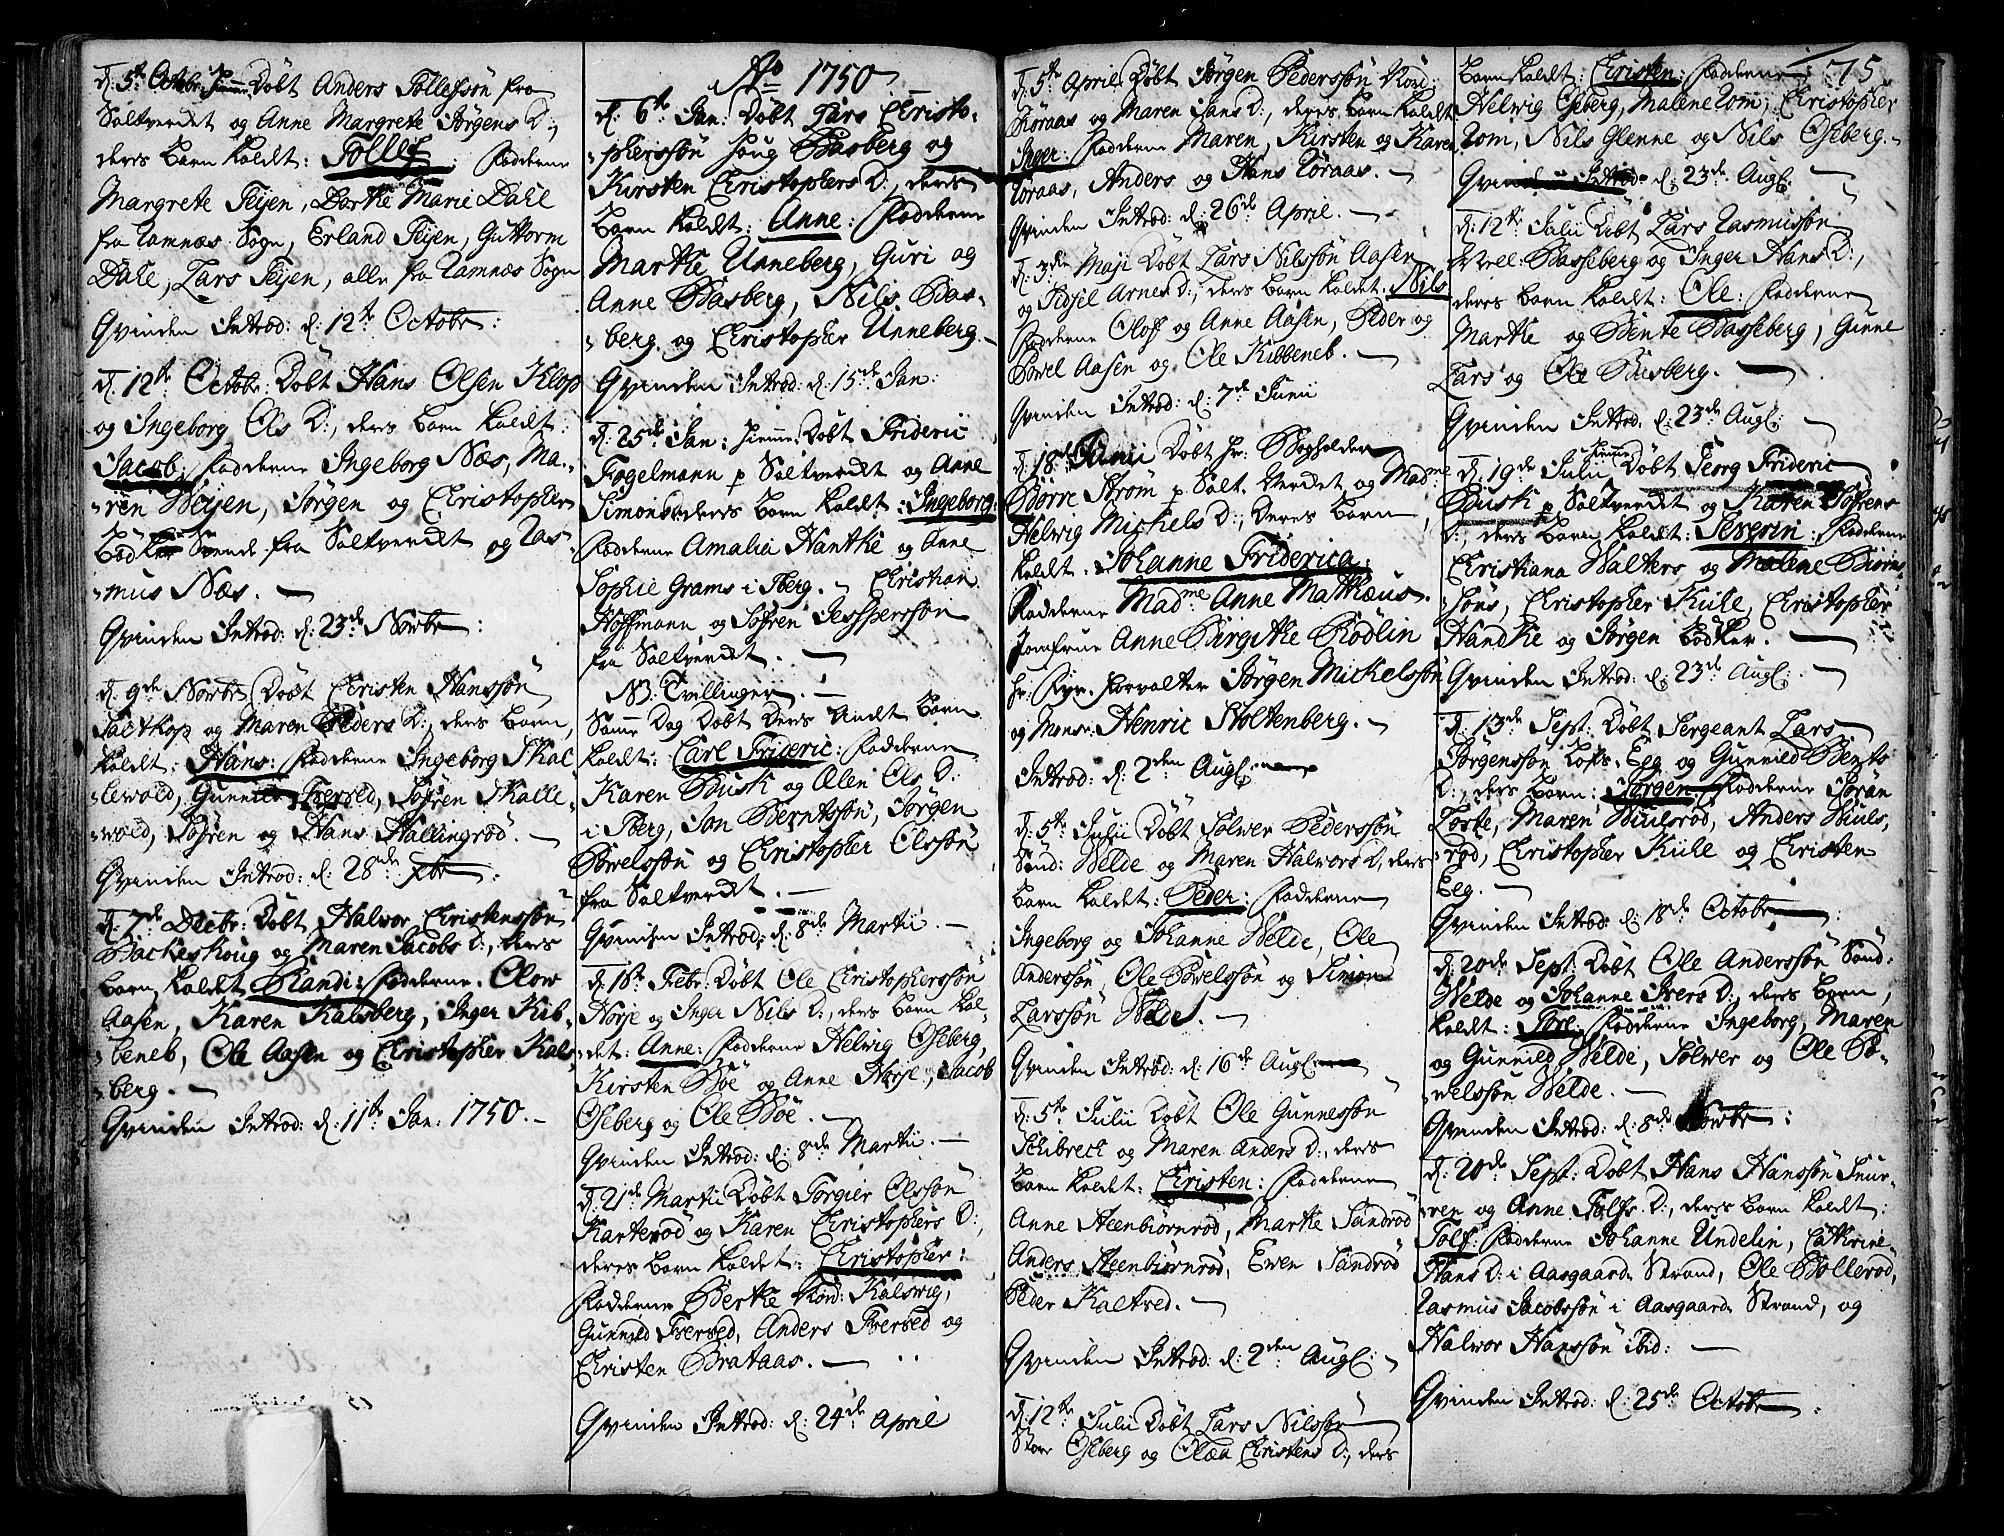 d: 5te Octobr: hieme: Döbt Anders Tollefsön fra
Saltverdet og Anne Margrete Jörgens D:,
deres Barn kaldt: Tollef: Fadderne
Margrete Teijen, Dorthe Marie Dahl
fra Ramnæs Sogn, Erland Teijen, Guttorm
Dahl, Lars Teijen, alle fra Ramnæs Sogn
Qvinden Introd: d: 12te Octobr:
d: 12te Octobr: Döbt Hans Olsen Klop
og Ingeborg Ols D:, ders Barn kaldt:
Jacob: Fadderne Ingeborg Næs, Ma-
ren Weijen, Jörgen og Christopher
Bödker Svende fra Saltverdet og Ras-
mus Næs. —
Qvinden Introd: d: 23de Novbr:
d: 9de Novbr: Döbt Christen Hanssön
Saltkop og Maren Peders D:, ders Barn
kaldt: Hans: Fadderne Ingeborg Skal-
lewold, Gunnild Tverved, Söfren Skalle-
wold, Söfren og Hans Hallingröd. —
Qvinden Introd: d: 28de Xbr:
d: 7de Decbr: Döbt Halvor Christenssön
Backeskoug og Maren Jacobs D:, ders
Barn kaldt Randi: Fadderne. Olow
Aasen, Karen Kalsberg, Inger Kib-
beneb, Ole Aasen og Christopher Kals-
berg. —
Qvinden Introd: d: 11te Jan: 1750. —
Ao 1750
d: 6te Jan: Döbt Lars Christo-
phersön Houg Basberg og
Kirsten Christophers D:, ders
Barn kaldt: Anne: Fadderne
Marthe Unneberg, Guri og
Anne Basberg, Nils Bas-
berg og Christopher Unneberg. —
Qvinden Introd: d: 15de Jan:
d: 25de Jan: hieme: Döbt Frideric
Fogelmann p Saltverdet og Anne
Simons deres Barn kaldt: Ingeborg:
Fadderne Amalia Hantke og Anne
Sophie Grams i Berg. — Christian
Hoffmann og Söfren Jesperssön
fra Saltverdet. —
NB: Tvillinger. —
Samme Dag Döbt Ders Andet Barn
kaldt: Carl Frideric: Fadderne
Karen Busk og Elen Ols D:
i Berg, Jon Berntssön, Jörgen
Powelssön og Christopher Olssön
fra Saltverdet. —
Qvinden Introd: d: 8de Martii. —
d: 18te Febr: Döbt Ole Christopherssön
Horje og Inger Nils D:, ders Barn kal-
det: Anne: Fadderne Helwig Oseberg,
Kirsten Böe og Anne Horje, Jacob
Oseberg og Ole Böe. —
Qvinden Introd: d: 8de Martii. —
d: 21de Martii Döbt Torgier Olssön
Karteröd og Karen Christophers D:,
deres Barn kaldt: Christopher:
Fadderne Berthe Nord: Kalswig,
Gunnild Tverved, Anders Tverved og
Christen Brataas. —
Qvinden Introd: d: 24de April
d: 5te April Döbt Jörgen Pederssön Nord:
Röraas og Maren Jans D:, deres Barn kaldt
Inger: Fadderne Maren, Kirsten og Karen
Röraas, Anders og Hans Röraas. —
Qvinden Introd: d: 26de April. —
d: 3die Maji Döbt Lars Nilssön Aasen
og Sidsel Arnes D:, ders Barn kaldet: Nils
Fadderne Oloff og Anne Aasen, Peder og
Povel Aasen og Ole Kibbeneb. —
Qvinden Introd: d: 7de Junii
d: 18de Junii Döbt Hr: Bogholder
Börre Ström p Salt. Verdet og Madme
Helwig Michels D:, Deres Barn
kaldt. Johanne Friderica:
Fadderne Madme Anne Mathæus.
Jomfrue Anne Birgithe Rödlin
Hr: Ejer. Forvalter Jörgen Mickelssön
og Monsr: Henric Stoltenberg. —
Introd: d: 2den Augl:
d: 5te Julii Döbt Sölwer Pederssön
Sönd: Welde og Maren Halvors D, ders
Barn kaldt: Peder: Fadderne
Ingeborg og Johanne Welde, Ole
Anderssön, Ole Powelssön og Simon
Larssön Welde. —
Qvinden Introd: d: 16de Augl:
d: 5te Julii Döbt Ole Gunnessön
Schibreck og Maren Anders D:, ders
Barn kaldet: Christen: Fadderne
Anne Steenbiörnröd, Marthe Sandröd
Anders Steenbiörnröd, Ewen Sandröd
Peder Kaltved. —
Qvinden Introd: d: 2den Augl: —
d: 12te Julii Döbt Lars Nilssön
Store Oseberg og Olæa Christens D:, ders
175.
Barn kaldt: Christen: Fadderne
Helwig Oseberg, Malene Rom, Christopher
Rom, Nils Glenne og Nils Oseberg. —
Qvinden Introd: d: 23de Augl: —
d: 12te Julii Döbt Lars Rasmussön
Basseberg og Inger Hans D:,
deres Barn kaldt: Ole: Fadderne
Marthe og Bente Basseberg, Gunne
Lars og Ole Basberg. —
Qvinden Introd. d: 23de Augl: —
d: 19de Julii hieme: Döbt Georg Frideric
Busk p Saltverdet og Karen Söfrens
D:, ders Barn kaldt: Severin: Fadderne
Christiana Walters og Malene Biörns-
söns, Christopher Kihle, Christopher
Handke og Jörgen Bödker. —
Qvinden Introd: d: 23de Augl: —
d: 13de Sept: Döbt Sergeant Lars
Jörgenssön Lofts-Eeg og Gunnild Bents
D:, ders Barn: Jörgen: Fadderne Söran
Loske, Maren Hiulsröd, Anders Hiuls-
röd, Christopher Kihle og Christen
Eeg. —
Qvinden Introd: d: 18de Octobr:
d: 20de Sept: Döbt Ole Anderssön Sönd:
Welde og Johanne Ivers D:, ders Barn
kaldt: Tore: Fadderne Ingeborg, Maren
og Gunnild Welde, Sölwer og Ole Po-
welssön Welde. —
Qvinden Introd: d: 8de Novbr:
d: 20de Sept: Döbt Hans Hanssön Snur-
ren og Anne Tolfs D:, deres Barn kaldt:
Tolf: Fadderne Johanne Undelin, Cathrine
Hans D: i Aasgaard Strand, Ole Bolleröd,
Rasmus Jacobssön i Aasgaard Strand, og
Halvor Hanssön ibid: —
Qvinden Introd: d: 25de Octobr: